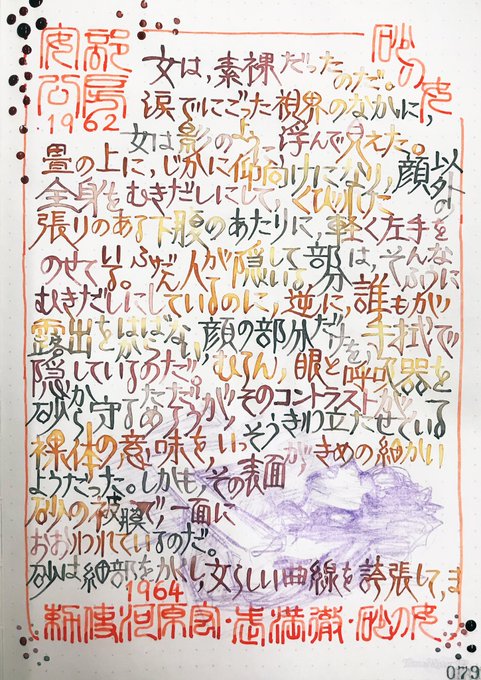 安部
公房
1962
砂の女
女は,素裸だったのだ。
涙でにごった視界のなかに,
女は影のように浮んで見えた。
畳の上に,じかに仰向けになり,顔以外の
全身をむきだしにして,くびれた
張りのある下腹のあたりに,軽く左手を
のせている。ふだん人が隠している部分は,そんなふうに
むきだしにしているのに,逆に,誰もが
露出をはばからない,顔の部分だけを,手拭で
隠しているのだ。むろん,眼と呼吸器を
砂から守るためだろうが,そのコントラストが,
裸体の意味を,いっそうきわ立たせている
ようだった。しかも,その表面が,きめの細かい
砂の被膜で,一面に
おおわれているのだ。
砂は細部をかくし,女らしい曲線を誇張して,ま
1964
勅使河原宏・武満徹・砂の女
079